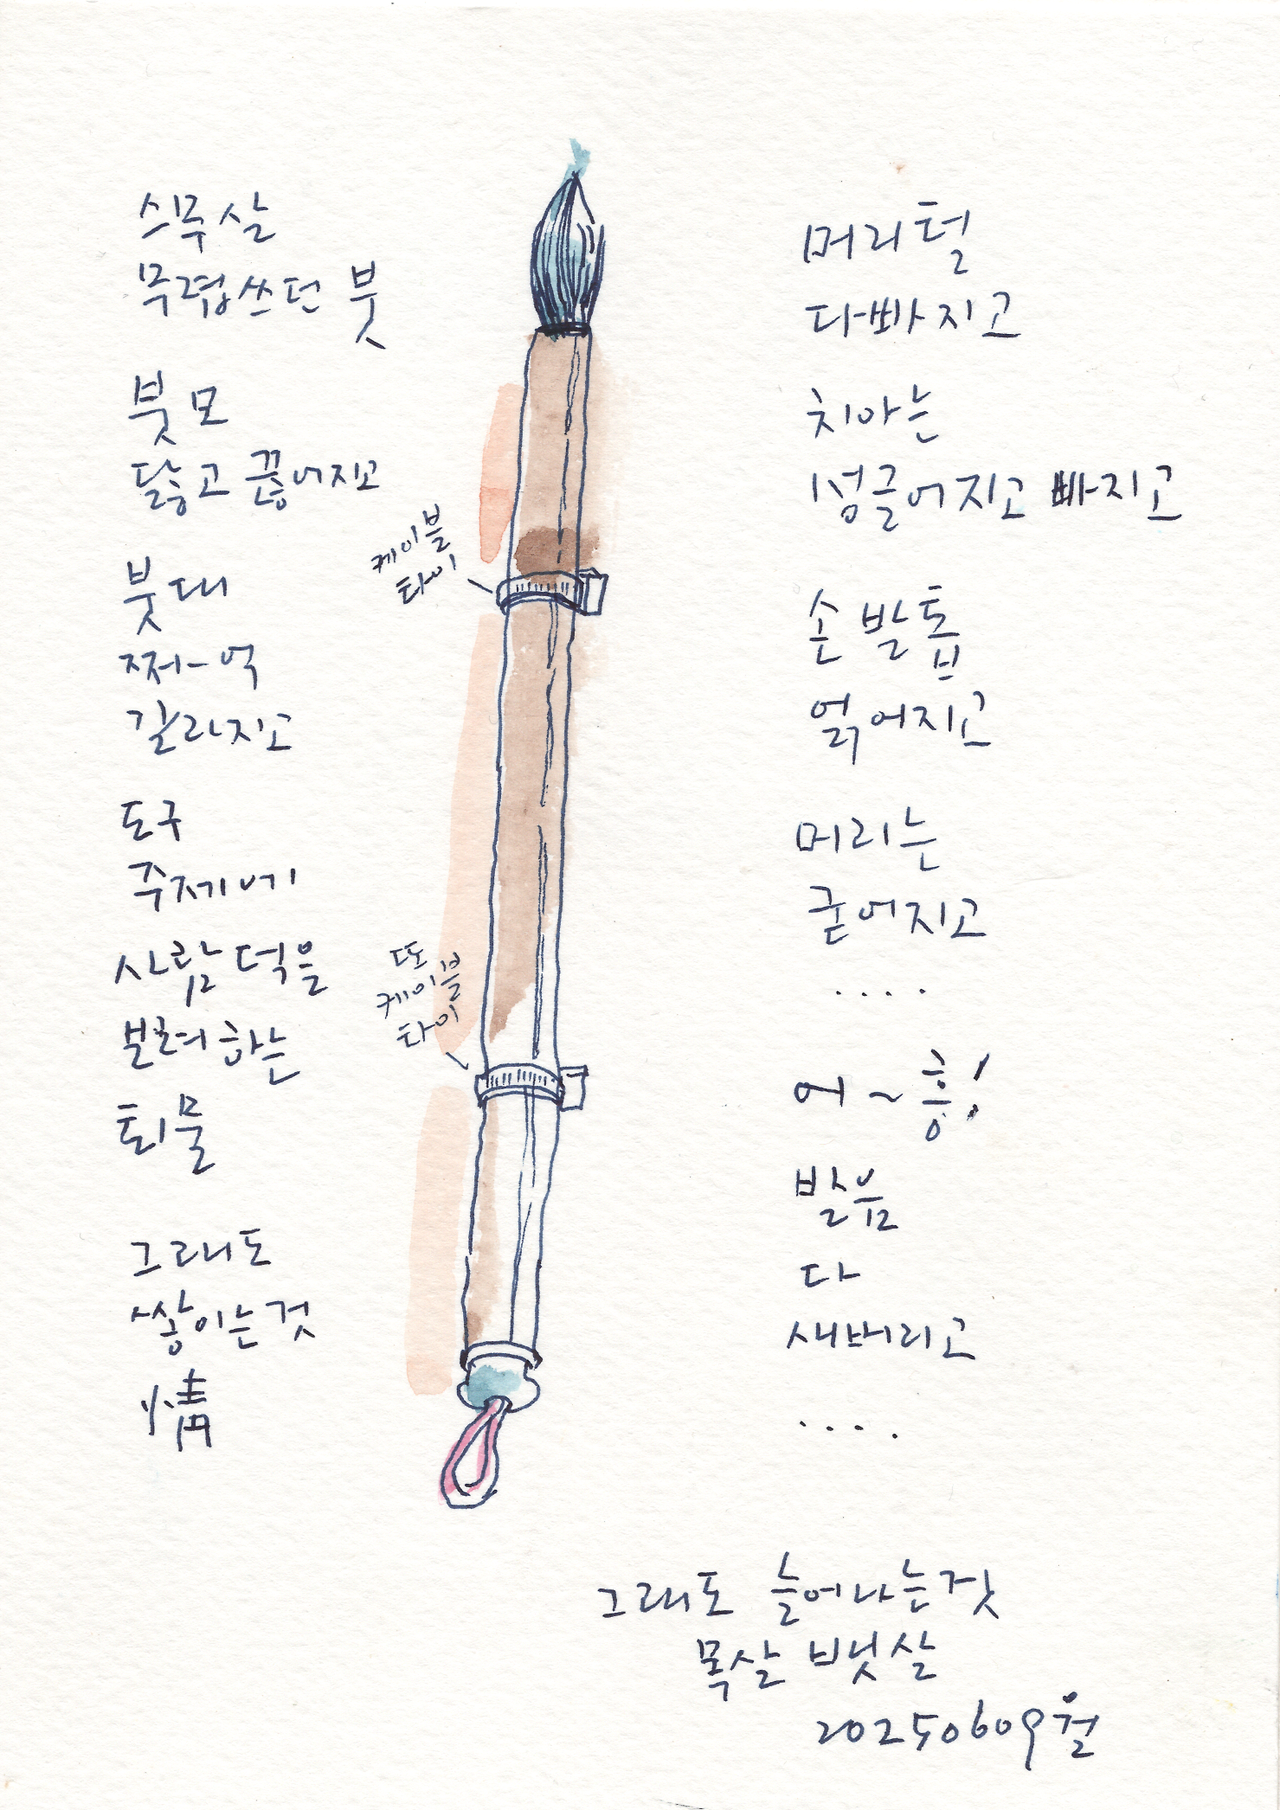 스무살
무렵쓰던 붓
붓모
닳고 끊어지고
케이블
타이
붓대
쩌~억
갈라지고
도구
주제에
사람 덕을
보려하는
퇴물
또
케이블
타이
그래도
쌓이는것
情
머리털
다빠지고
치아는
성글어지고 빠지고
손발톱
얽어지고
머리는
굳어지고
....
어~흥!
발음
다
새버리고
....
그래도 늘어나는것
목살 뱃살
20250609월